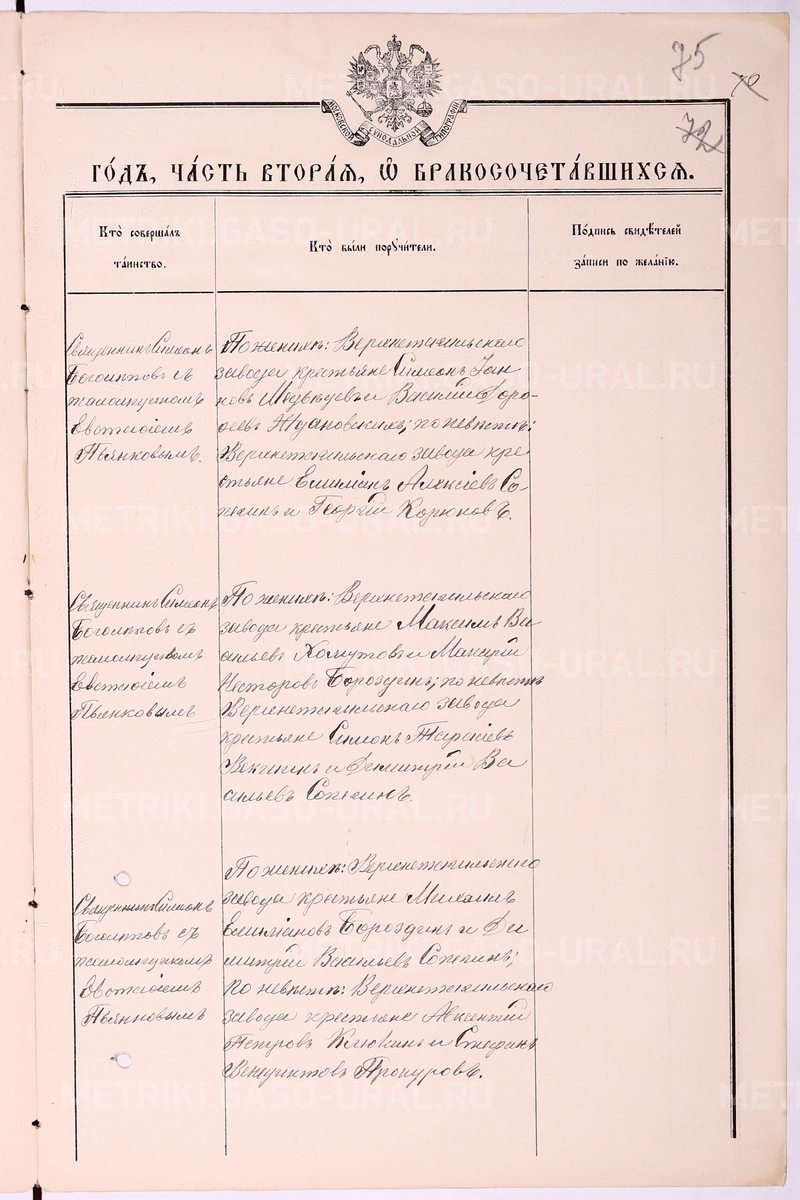 75
70
72
МОСКОВСКОЙ СѴНОДАЛЬНОЙ ТИПОГРАФІИ
ГО́ДЪ, ЧА́СТЬ ВТОРА́Я, Ѽ БРАКОСОЧЕТА́ВШИХСЯ.
Кто̀ соверша́лъ
та́инство.
Кто̀ бы́ли порꙋчи́тели.
По́дпись свидѣ́телей
за́писи по жела́нїю.
Священникъ Симеонъ
Боголѣповъ съ
псаломщикомъ
Евстафіемъ
Пьянковымъ.
По женихѣ: Верхнетагильскаго
завода крестьяне Симеонъ Іак
овъ Медвѣдевъ и Василій Доро-
феевъ Ждановскихъ; по невѣстѣ:
Верхнетагильскаго завода кре
стьяне Елимпій Алексіевъ Со-
пегинъ и Георгій Корюковъ.
Священникъ Симеонъ
Боголѣповъ съ
псаломщикомъ
Евстафіемъ
Пьянковымъ
По женихѣ: Верхнетагильскаго
завода крестьяне Максимъ Ва
сильевъ Хомутовъ и Макарій
Несторовъ Бороздинъ; по невѣстѣ
Верхнетагильскаго завода
крестьяне Симонъ Тарасіевъ
Векшинъ и Димитрій Ва
сильевъ Сопегинъ.
Священникъ Симеонъ
Боголѣповъ съ
псаломщикомъ
Евстафіемъ
Пьянковымъ
По женихѣ: Верхнетагильскаго
завода крестьяне Михаилъ
Елимпіановъ Бороздинъ и Ди
митрій Васильевъ Сопегинъ;
по невѣстѣ: Верхнетагильскаго
завода крестьяне Авксентій
Петровъ Клюкинъ и Стефанъ
Венедиктовъ Прокуровъ.
METRIKI.GASO-URAL.RU